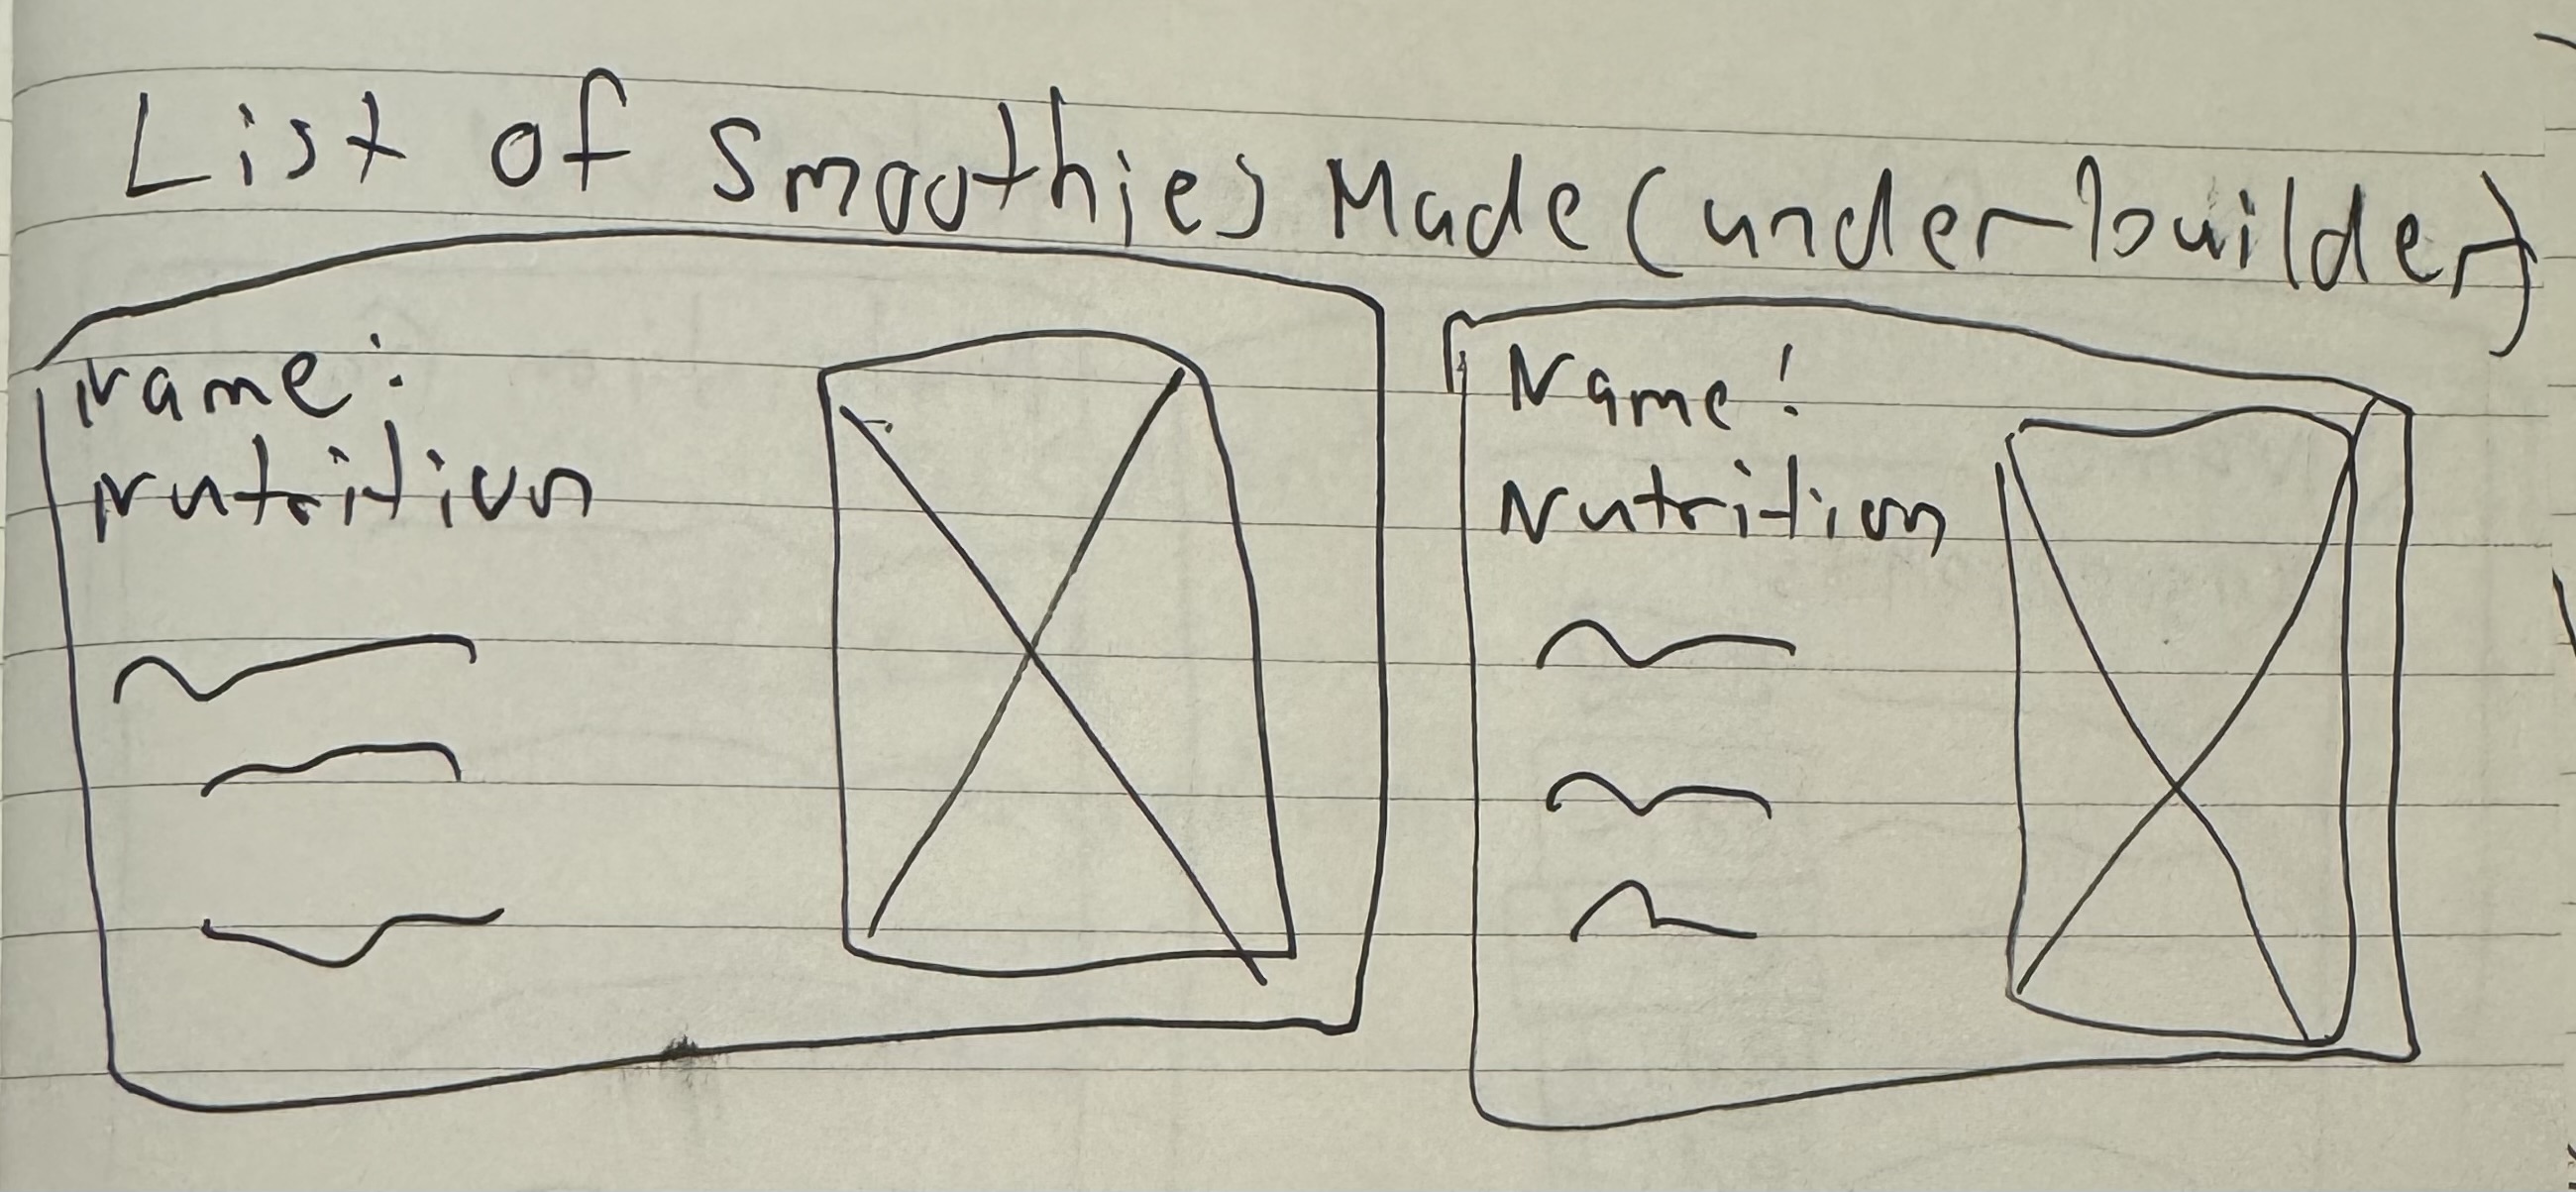 List of Smoothies Made (under builder)
Name:
Nutrition
Name:
Nutrition